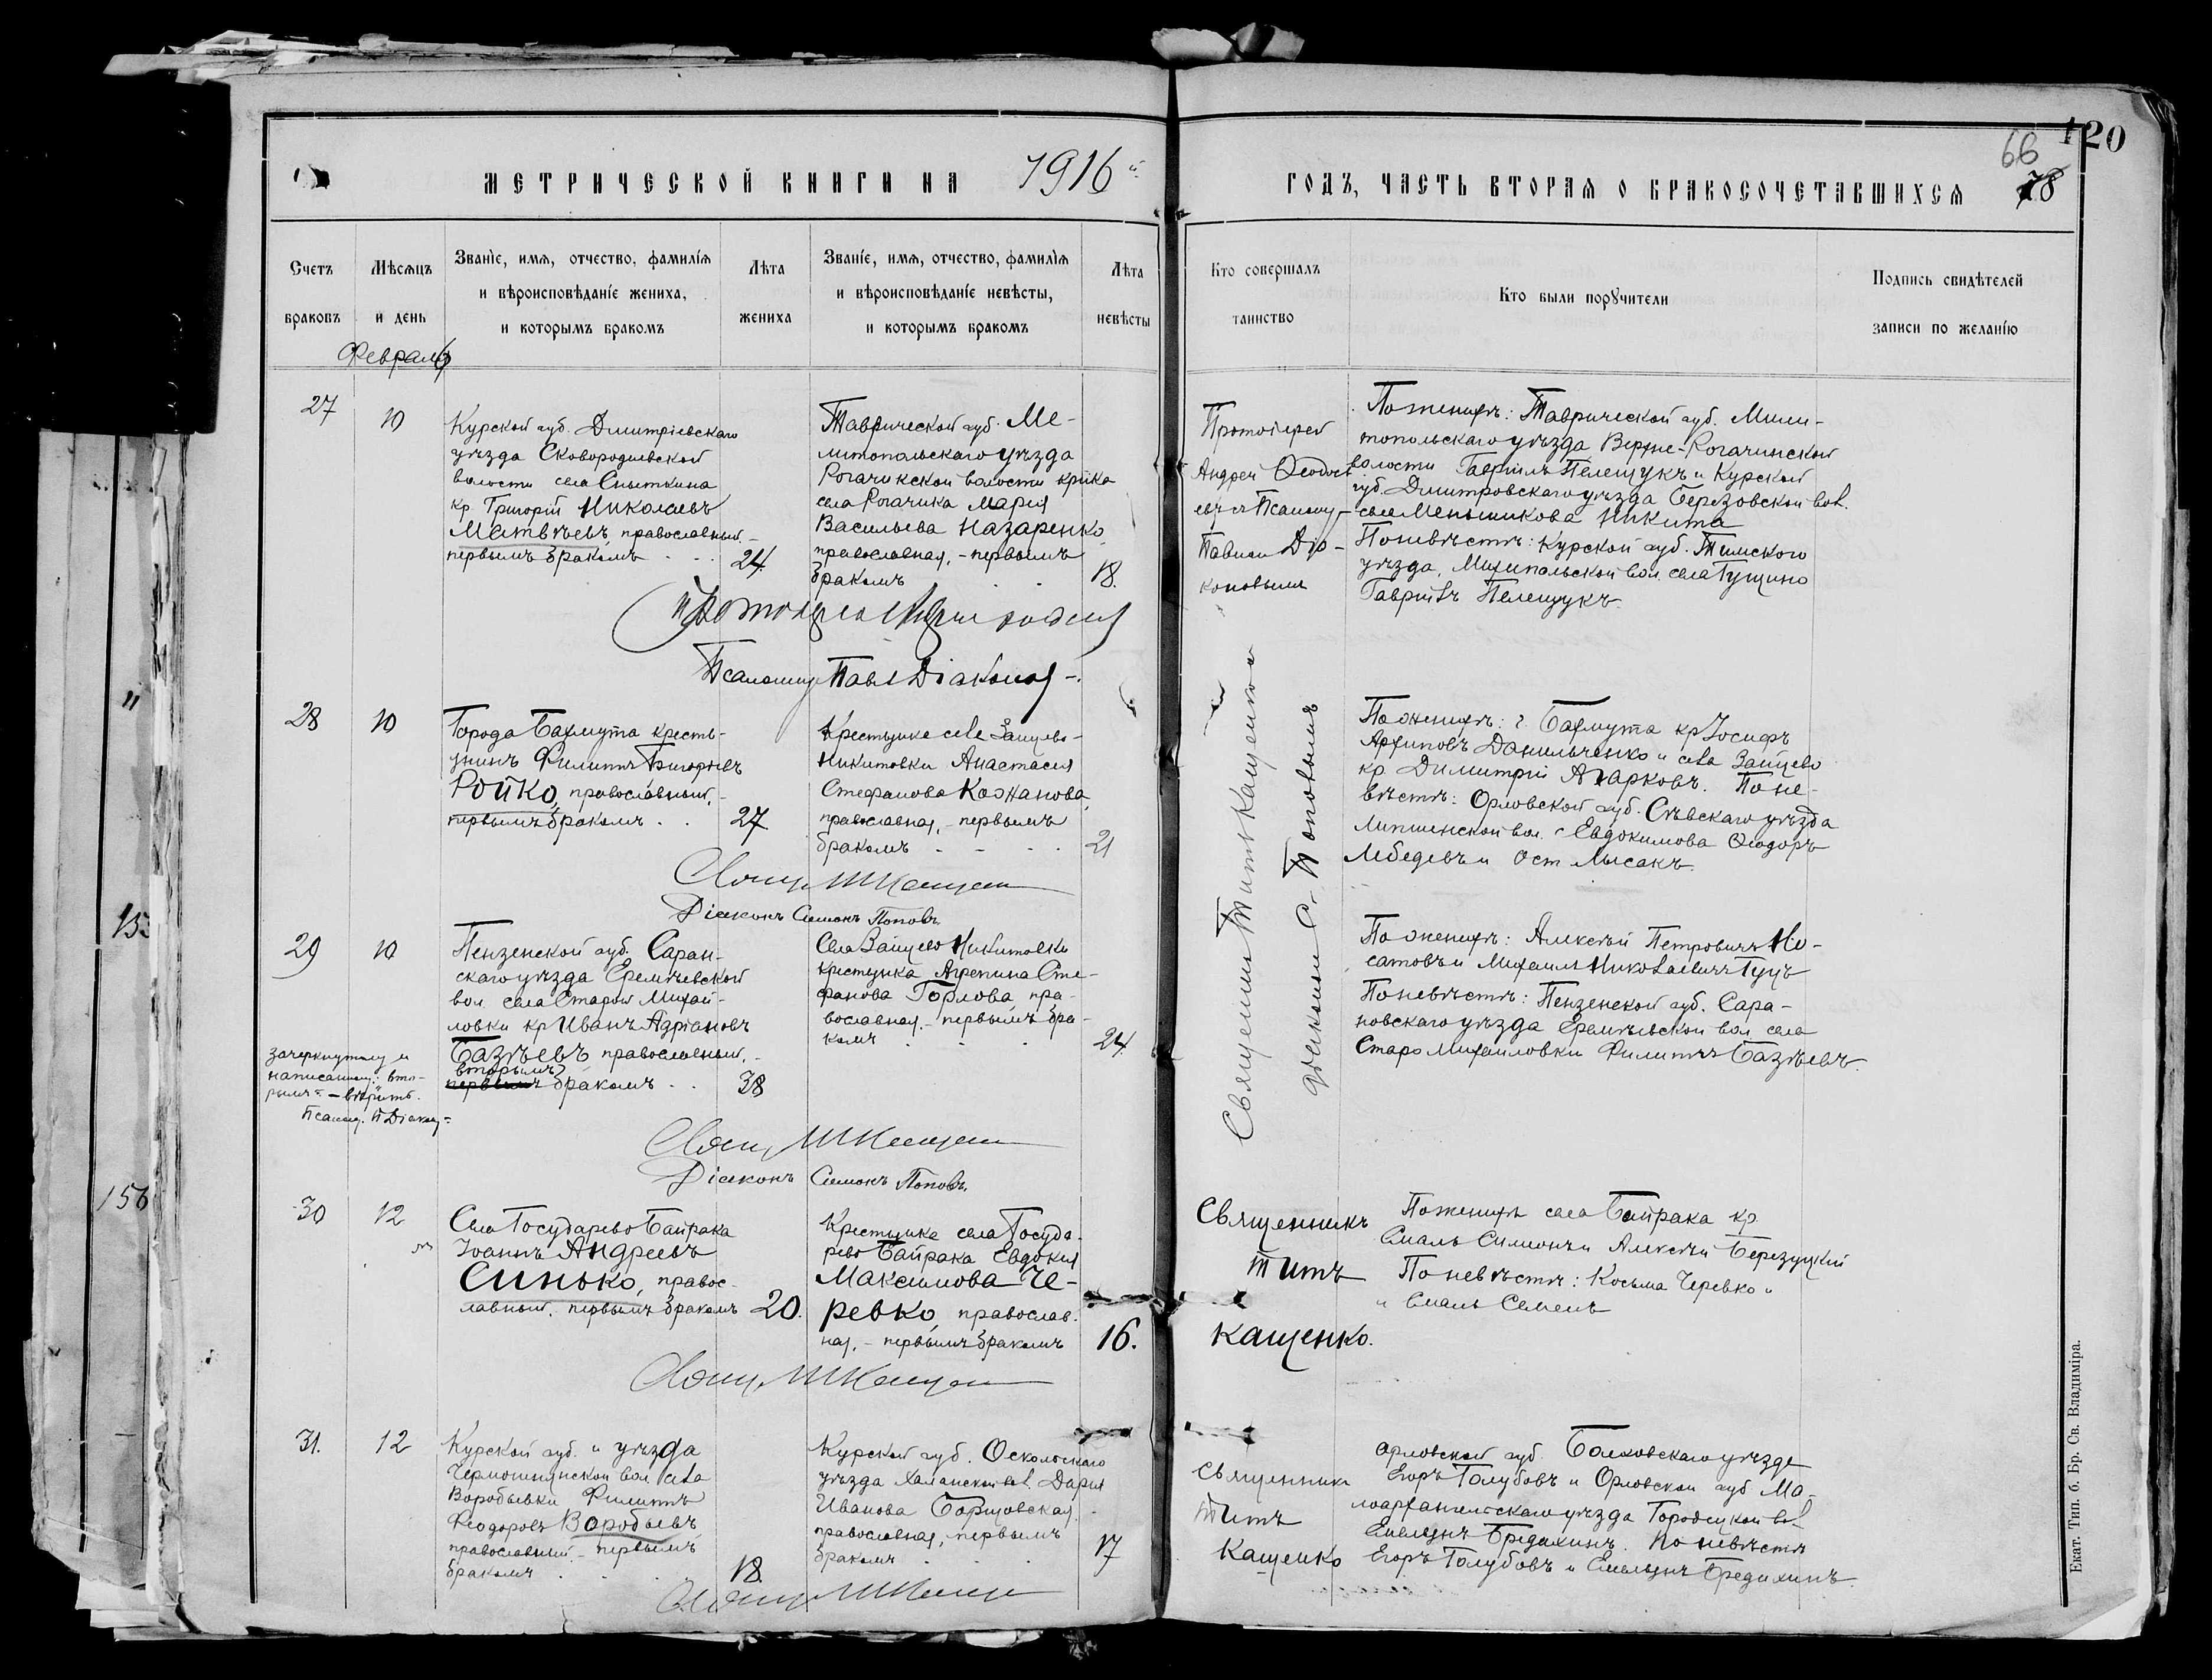 120
66
78
МЕТРИЧЕСКОЙ КНИГИ НА 1916 й
ГОДЪ, ЧАСТЬ ВТОРАЯ О БРАКОСОЧЕТАВШИХСЯ
Счетъ браковъ
Мѣсяцъ и день
Званіе, имя, отчество, фамилія
и вѣроисповѣданіе жениха,
и которымъ бракомъ
Лѣта жениха
Званіе, имя, отчество, фамилія
и вѣроисповѣданіе невѣсты,
и которымъ бракомъ
Лѣта невѣсты
Кто совершалъ таинство
Кто были порꙋчители
Подпись свидѣтелей
записи по желанію
Февраль
27
10
Курской губ. Дмитріевскаго
уѣзда Сковородневской
волости села Сныткина
кр. Григорій Николаевъ
Матвѣевъ, православный, -
первымъ бракомъ
24.
Таврической губ. Ме-
литопольскаго уѣзда
Рогачикской волости кр-нка
села Рогачика Марія
Васильева Назаренко,
православная, - первымъ
бракомъ
18.
Протоіерей
Андрей Ѳеодось
евъ и Псаломщ-
Павлом Діа-
коновымъ
По женихѣ: Таврической губ. Мели-
топольскаго уѣзда Верхне-Рогачинской
волости Гавріилъ Пелещукъ и Курской
губ. Дмитровскаго уѣзда Березовской вол.
села Меньшикова Никита
По невѣстѣ: Курской губ. Тимскаго
уѣзда, вол. села Гущино
Гавріилъ Пелещукъ.
Псаломщ Павл Діаконов
28
10
Города Бахмута кресть-
янинъ Филиппъ Григорьевъ
Ройко, православный, -
первымъ бракомъ
27
Крестьянка села Зайцево-
Никитовки Анастасія
Стефанова Кожанова,
православная, - первымъ
бракомъ
21
Священникъ Титъ Кащенко
діакономъ С. Поповымъ
По женихѣ: г. Бахмута кр Іосифъ
Архиповъ Данильченко и села Зайцево
кр. Димитрій Агарковъ. По не-
вѣстѣ: Орловской губ. Сѣвскаго уѣзда
вол. с Евдокимова Ѳеодоръ
Лебедевъ и Ост Лысакъ.
Свящ Т Кащенко
Діаконъ Симонъ Поповъ
29
10
Пензенской губ. Саран-
скаго уѣзда Еремѣевской
вол. села Старой Михай-
ловки кр Иванъ Адріановъ
Базѣевъ, православный, -
вторымъ
первымъ бракомъ
38
Села Зайцево Никитовки
крестьянка Агрепина Сте-
фанова Горлова, пра-
вославная, - первымъ бра-
комъ
24.
По женихѣ: Алексѣй Петровичъ Но-
сатовъ и Михаилъ Николаевичъ Гуцъ
По невѣстѣ: Пензенской губ. Сара-
новскаго уѣзда Еремѣевской вол села
Старо Михаиловки Филиппъ Базѣевъ.
зачеркнутому и
написанному: вто-
рымъ - вѣрить.
Псаломщ. П Діакон
Свящ Т Кащенко
Діаконъ Симонъ Поповъ.
30
12
Села Государево Байрака
Іоаннъ Андреевъ
Синько, правос-
лавный, первымъ бракомъ
20.
Крестьянка села Госуда-
рево Байрака Евдокія
Максимова Че-
ревко, православ-
ная, - первымъ бракомъ
16.
Священникъ
Титъ
Кащенко.
По женихѣ села Байрака кр.
Смаль Симонъ и Алексѣй Березуцкій
По невѣстѣ: Косьма Черевко и
и Смаль Семенъ
Свящ Т Кащенко
31.
12
Курской губ. и уѣзда
вол села
Воробьевки Филиппъ
Ѳеодоровъ Воробьевъ,
православный, - первымъ
бракомъ
18.
Курской губ. Оскольскаго
уѣзда Халанской вол. Дарія
Иванова Борщовская,
православная, первымъ
бракомъ
17
Священникъ
Титъ
Кащенко
Орловской губ. Болховскаго уѣзда
Егоръ Голубовъ и Орловской губ Ма-
лоархангельскаго уѣзда Городецкой вол
Емельянъ Бредихинъ. По невѣстѣ
Егоръ Голубовъ и Емельянъ Бредихинъ.
Свящ Т Кащенко
Екат. Тип. б. Бр. Св. Владиміра.
15
156